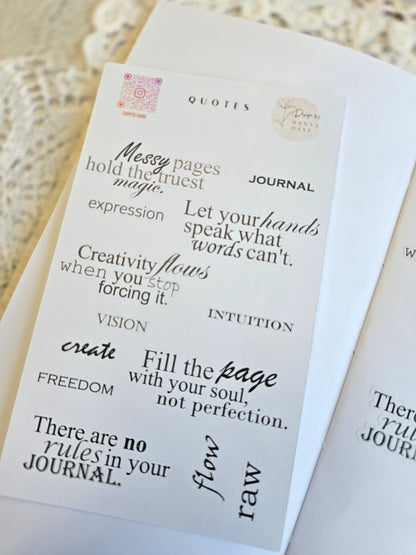 QUOTES
DANYS OASE
Drops by
DANYS
OASE
Messy pages
hold the truest
magic.
JOURNAL
expression
Let your hands
speak what
words can't.
Creativity flows
when you stop
forcing it.
VISION
INTUITION
create
FREEDOM
Fill the page
with your soul,
not perfection.
There are no
rules in your
JOURNAL.
flow
raw
There
rul
JOURN